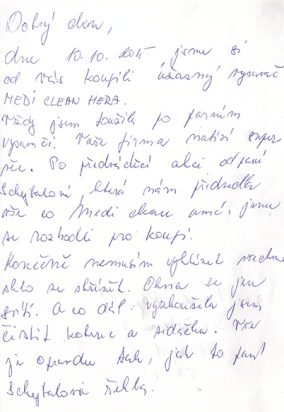 Dobrý den,
dne 10.10. 2015 jsme si
od vás koupili úžasný vysavač
MEDI CLEAN HERA.
Vždy jsem toužila po parním
vysavači. Vaše firma nabízí super
věc. Po předváděcí akci od paní
Schytalové, která nám předvedla
vše co Medi clean umí, jsme
se rozhodli pro koupi.
Konečně nemusím vyhlížet všechno
sklo se slunět. Okna se jen
A co dál. vyzkoušela jsem
čistit koberce a sedačku. Vše
je opravdu tak, jak to paní
Schytalová řekla.